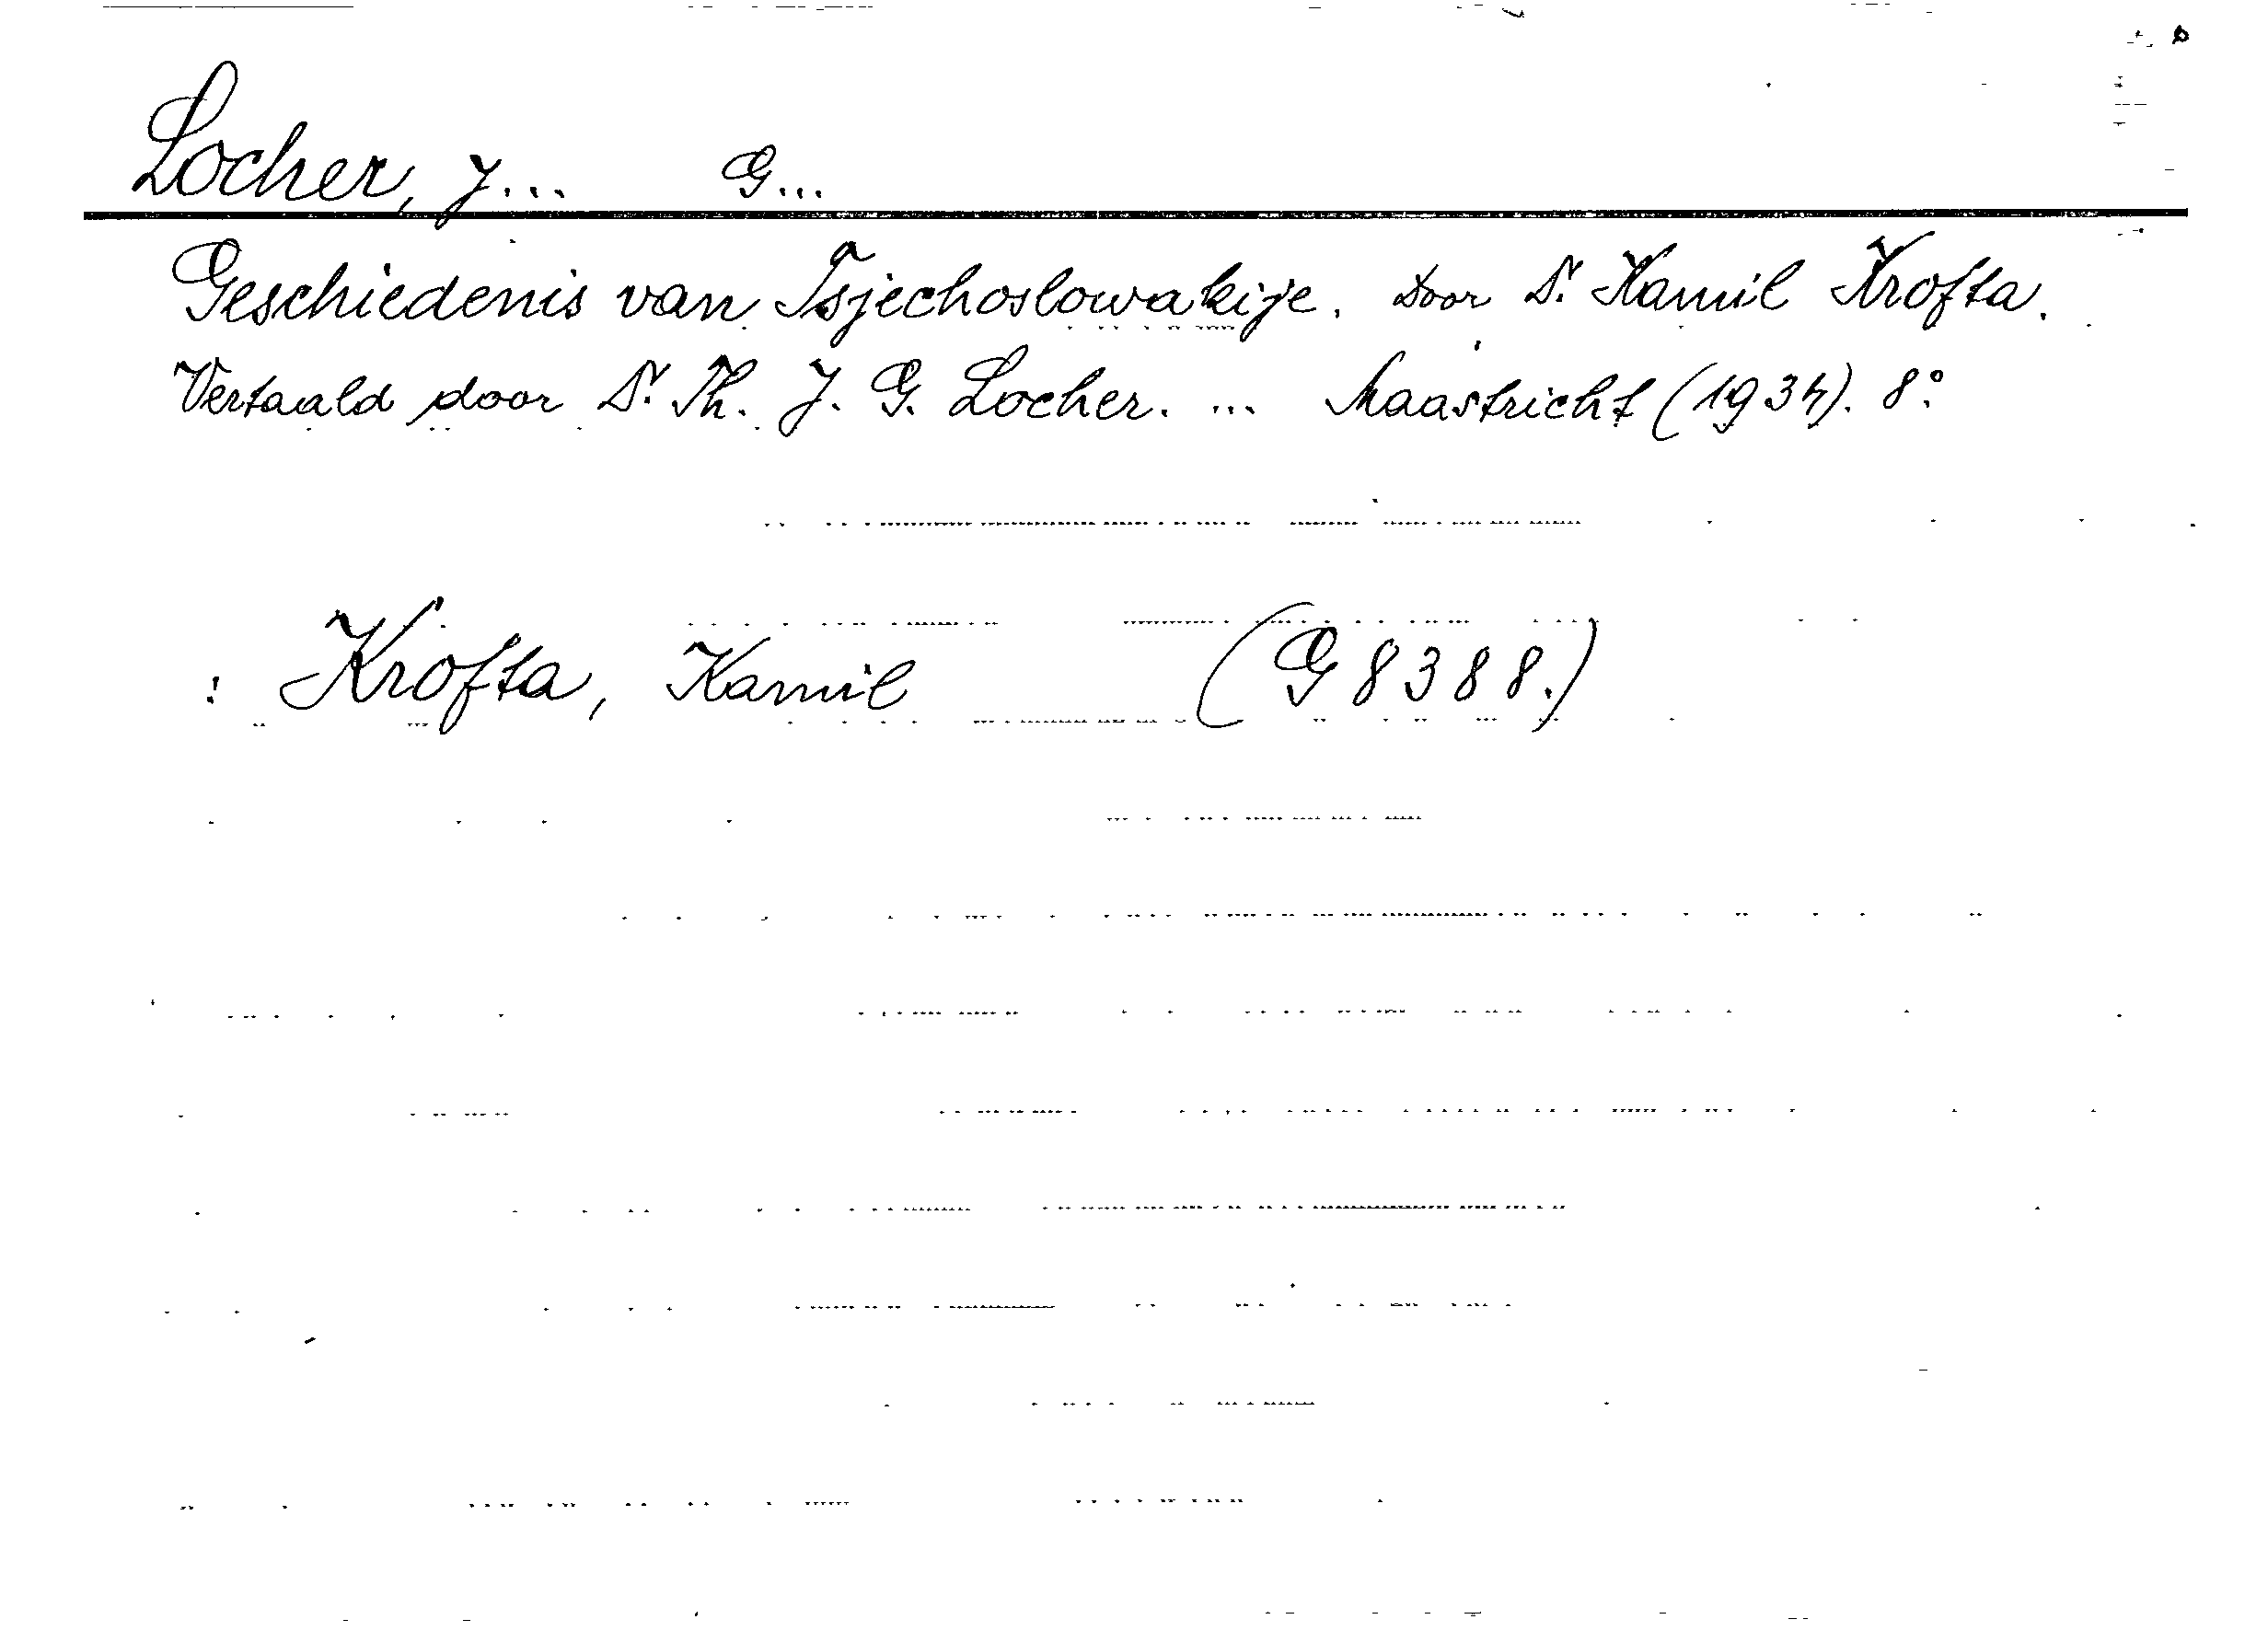 Locher, J... G...
Geschiedenis van Tsjechoslowakije. Door Dr. Kamil Krofta.
Vertaald door Dr. Th. J. G. Locher. ... Maastricht (1934). 8°.
: Krofta, Kamil (G 8388.)